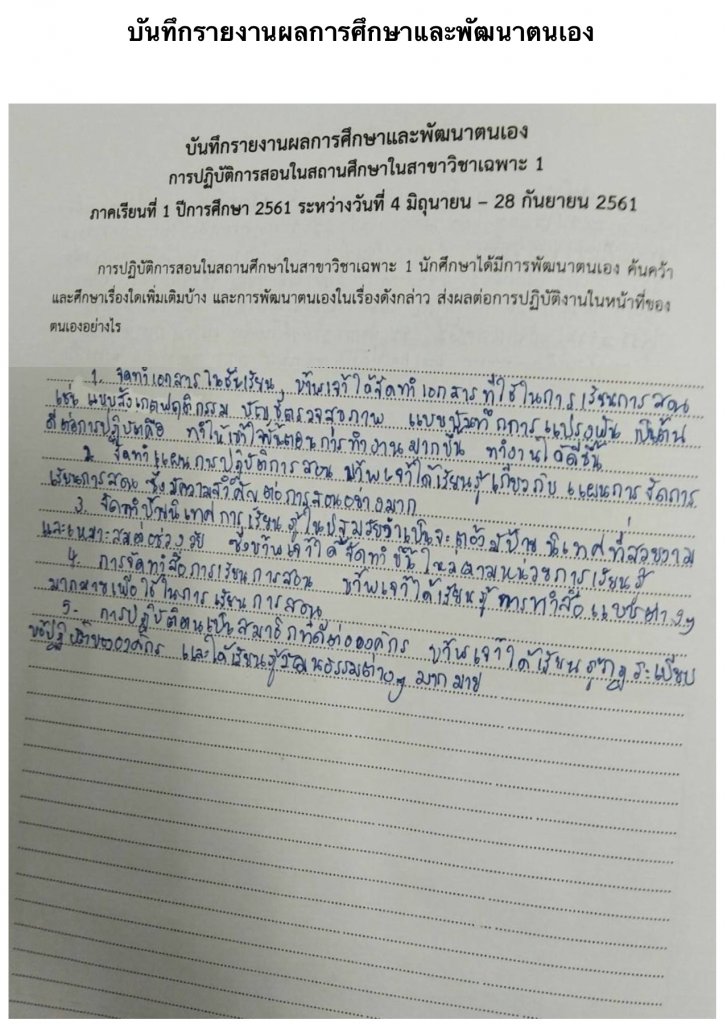 บันทึกรายงานผลการศึกษาและพัฒนาตนเอง
บันทึกรายงานผลการศึกษาและพัฒนาตนเอง
การปฏิบัติการสอนในสถานศึกษาในสาขาวิชาเฉพาะ 1
ภาคเรียนที่ 1 ปีการศึกษา 2561 ระหว่างวันที่ 4 มิถุนายน – 28 กันยายน 2561
การปฏิบัติการสอนในสถานศึกษาในสาขาวิชาเฉพาะ 1 นักศึกษาได้มีการพัฒนาตนเอง ค้นคว้า
และศึกษาเรื่องใดเพิ่มเติมบ้าง และการพัฒนาตนเองในเรื่องดังกล่าว ส่งผลต่อการปฏิบัติงานในหน้าที่ของ
ตนเองอย่างไร
1. จัดทำเอกสารในชั้นเรียน ข้าพเจ้าได้จัดทำเอกสารที่ใช้ในการเรียนการสอน
เช่น แบบสังเกตพฤติกรรม บัญชีตรวจสุขภาพ แบบบันทึกการแปรงฟัน เป็นต้น
ดีต่อการปฏิบัติคือ ทำให้เข้าใจขั้นตอนการทำงานมากขึ้น ทำงานได้ดีขึ้น
2. จัดทำแผนการปฏิบัติการสอน ข้าพเจ้าได้เรียนรู้เกี่ยวกับ แผนการจัดการ
เรียนการสอน ซึ่งมีความสำคัญต่อการสอนอย่างมาก
3. จัดทำป้ายนิเทศ การเรียนรู้ในปฐมวัยจำเป็นจะต้องมีป้ายนิเทศที่สวยงาม
และเหมาะสมต่อช่วงวัย ซึ่งข้าพเจ้าได้จัดทำขึ้นใหม่ตามหน่วยการเรียนรู้
4. การจัดทำสื่อการเรียนการสอน ข้าพเจ้าได้เรียนรู้ การทำสื่อแบบต่างๆ
มากมายเพื่อใช้ในการเรียนการสอน
5. การปฏิบัติตนเป็นสมาชิกที่ดีต่อองค์กร ข้าพเจ้าได้เรียนรู้กฎระเบียบ
ข้อปฏิบัติขององค์กร และได้เรียนรู้วัฒนธรรมต่างๆ มากมาย